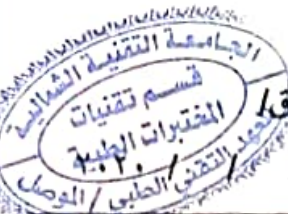 الجامعة التقنية الشمالية
قسم تقنيات
المختبرات الطبية
المعهد التقني الطبي / الموصل